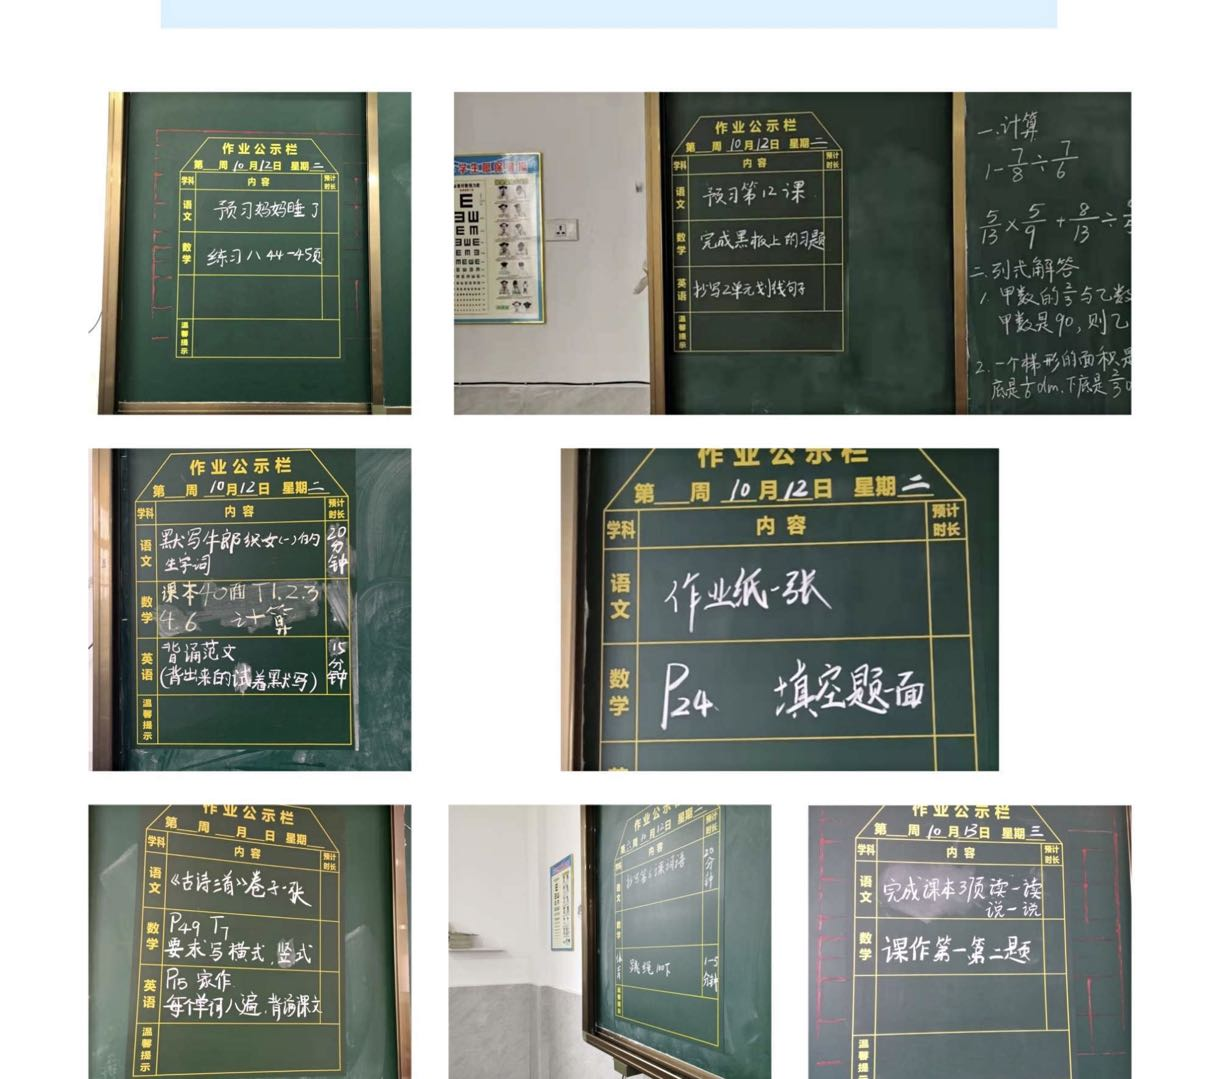 作业公示栏
第 周 10月12日 星期二
学科 内容 预计时长
语文 预习妈妈睡了
数学 练习八 44-45页
温馨提示
作业公示栏
第 周 10月12日 星期二
学科 内容 预计时长
语文 预习第12课
数学 完成黑板上的习题
英语 抄写2单元划线句子
温馨提示
一.计算
1-7/8÷7/6
5/13×5/9+8/13÷
二.列式解答
1. 甲数的 与乙数
甲数是90,则乙
2. 一个梯形的面积是
底是1/6dm,下底是2/3
作业公示栏
第 周 10月12日 星期二
学科 内容 预计时长
语文 默写牛郎织女(一)的 20分钟
生字词
数学 课本40面 T1.2.3
4.6 计算
英语 背诵范文 15分钟
(背出来的试着默写)
温馨提示
作业公示栏
第 周 10月12日 星期二
学科 内容 预计时长
语文 作业纸一张
数学 P24 填空题一面
作业公示栏
第 周 月 日 星期
学科 内容 预计时长
语文 《古诗三首》卷子一张
数学 P49 T7
要求写横式,竖式
英语 P15 家作
每个单词八遍,背诵课文
温馨提示
作业公示栏
10月12日 星期二
学科 内容 预计时长
语文 抄写第6课词语 20分钟
数学
体育 跳绳100下 1-5分钟
温馨提示
作业公示栏
第 周 10月13日 星期三
学科 内容 预计时长
语文 完成课本3页读一读
说一说
数学 课作第一第二题
温馨提示